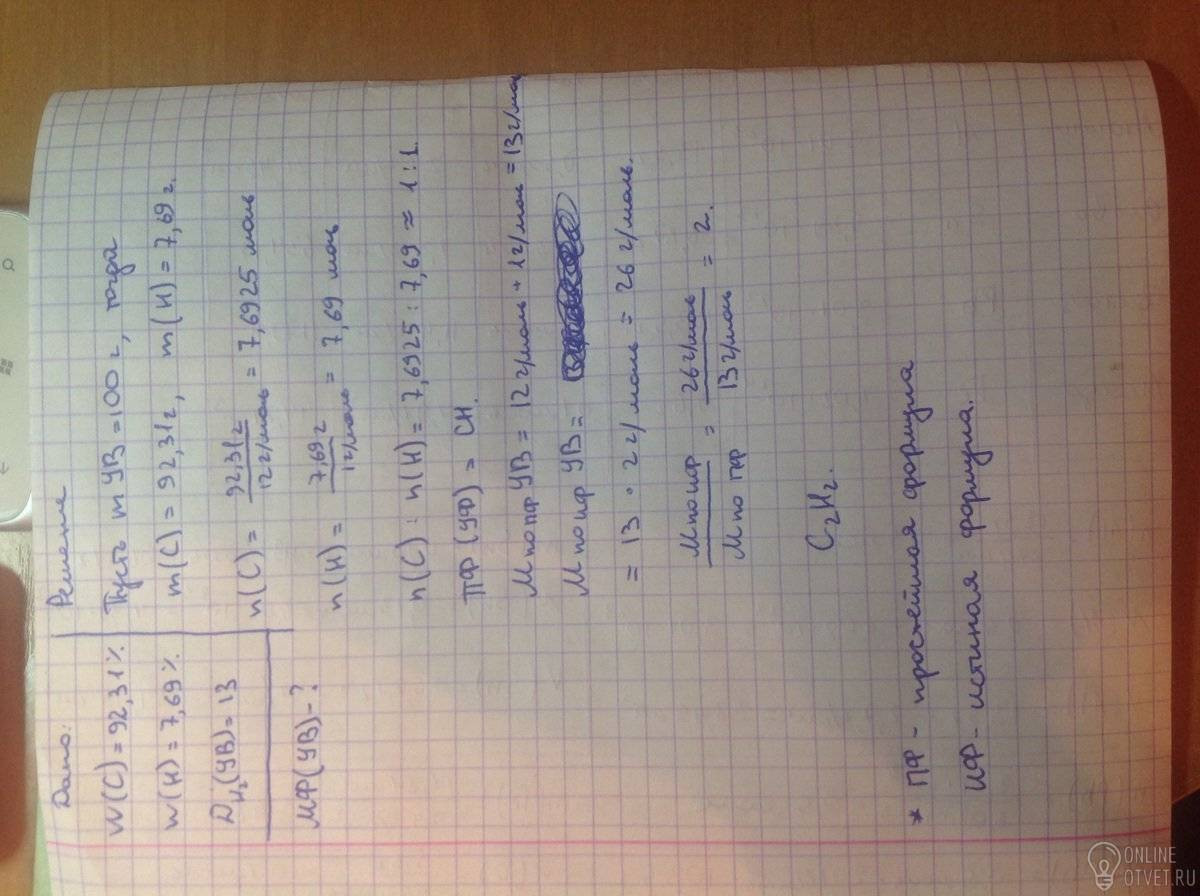 Дано:
W(C) = 92,31%
W(H) = 7,69%
D_H₂(УВ) = 13
МФ(УВ) - ?
Решение
Пусть m УВ = 100 г, тогда
m(C) = 92,31г, m(H) = 7,69 г.
n(C) = 92,31г / 12 г/моль = 7,6925 моль
n(H) = 7,69 г / 1г/моль = 7,69 моль
n(C) : n(H) = 7,6925 : 7,69 ≈ 1 : 1.
ПФ (УФ) = CH.
М по пф УВ = 12 г/моль + 1г/моль = 13г/моль
М по иф УВ =
= 13 · 2 г/моль = 26 г/моль.
М по иф / М по пф = 26 г/моль / 13 г/моль = 2.
C₂H₂.
* ПФ - простейшая формула
ИФ - истиная формула.
ONLINE
OTVET.RU